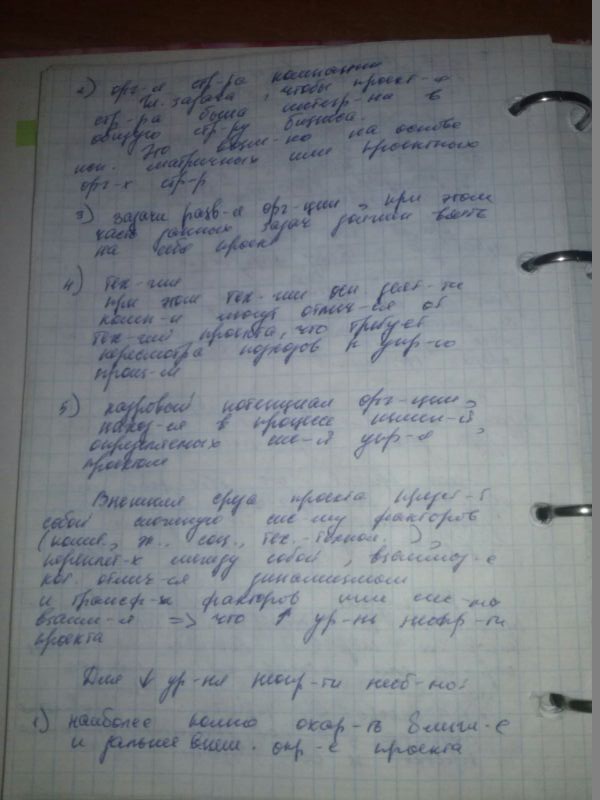 2) орг-я стр-ра компании
Гл. задача, чтобы проект-я
стр-ра была интегр-на в
общую стр-ру бизнеса.
Но на основе
матричных или проектных
орг-х стр-р
3) задачи разв-я орг-ции, при этом
часть данных задач должны взять
на себя проек
4) тех-гия
При этом тех-гии осн деят-ти
комп-и могут отлич-ся от
тех-гий проекта, что требует
пересмотра подходов к упр-ю
5) кадровый потенциал орг-ции,
наход-ся в процессе измен-й,
определяемых сис-й упр-я
проектом
Внешняя среда проекта предст-т
собой сложную сис-му факторов
(полит., эк., соц., тех.-технол.),
перепл-х между собой, взаимод-е
кот. отлич-ся динамизмом
и трансф-х факторов или сис-мы
взаим-я => что ↑ ур-нь неопр-ти
проекта
Для ↓ ур-ня неопр-ти необ-мо:
1) наиболее полно охар-ть ближн-е
и дальнее внеш. окр-е проекта